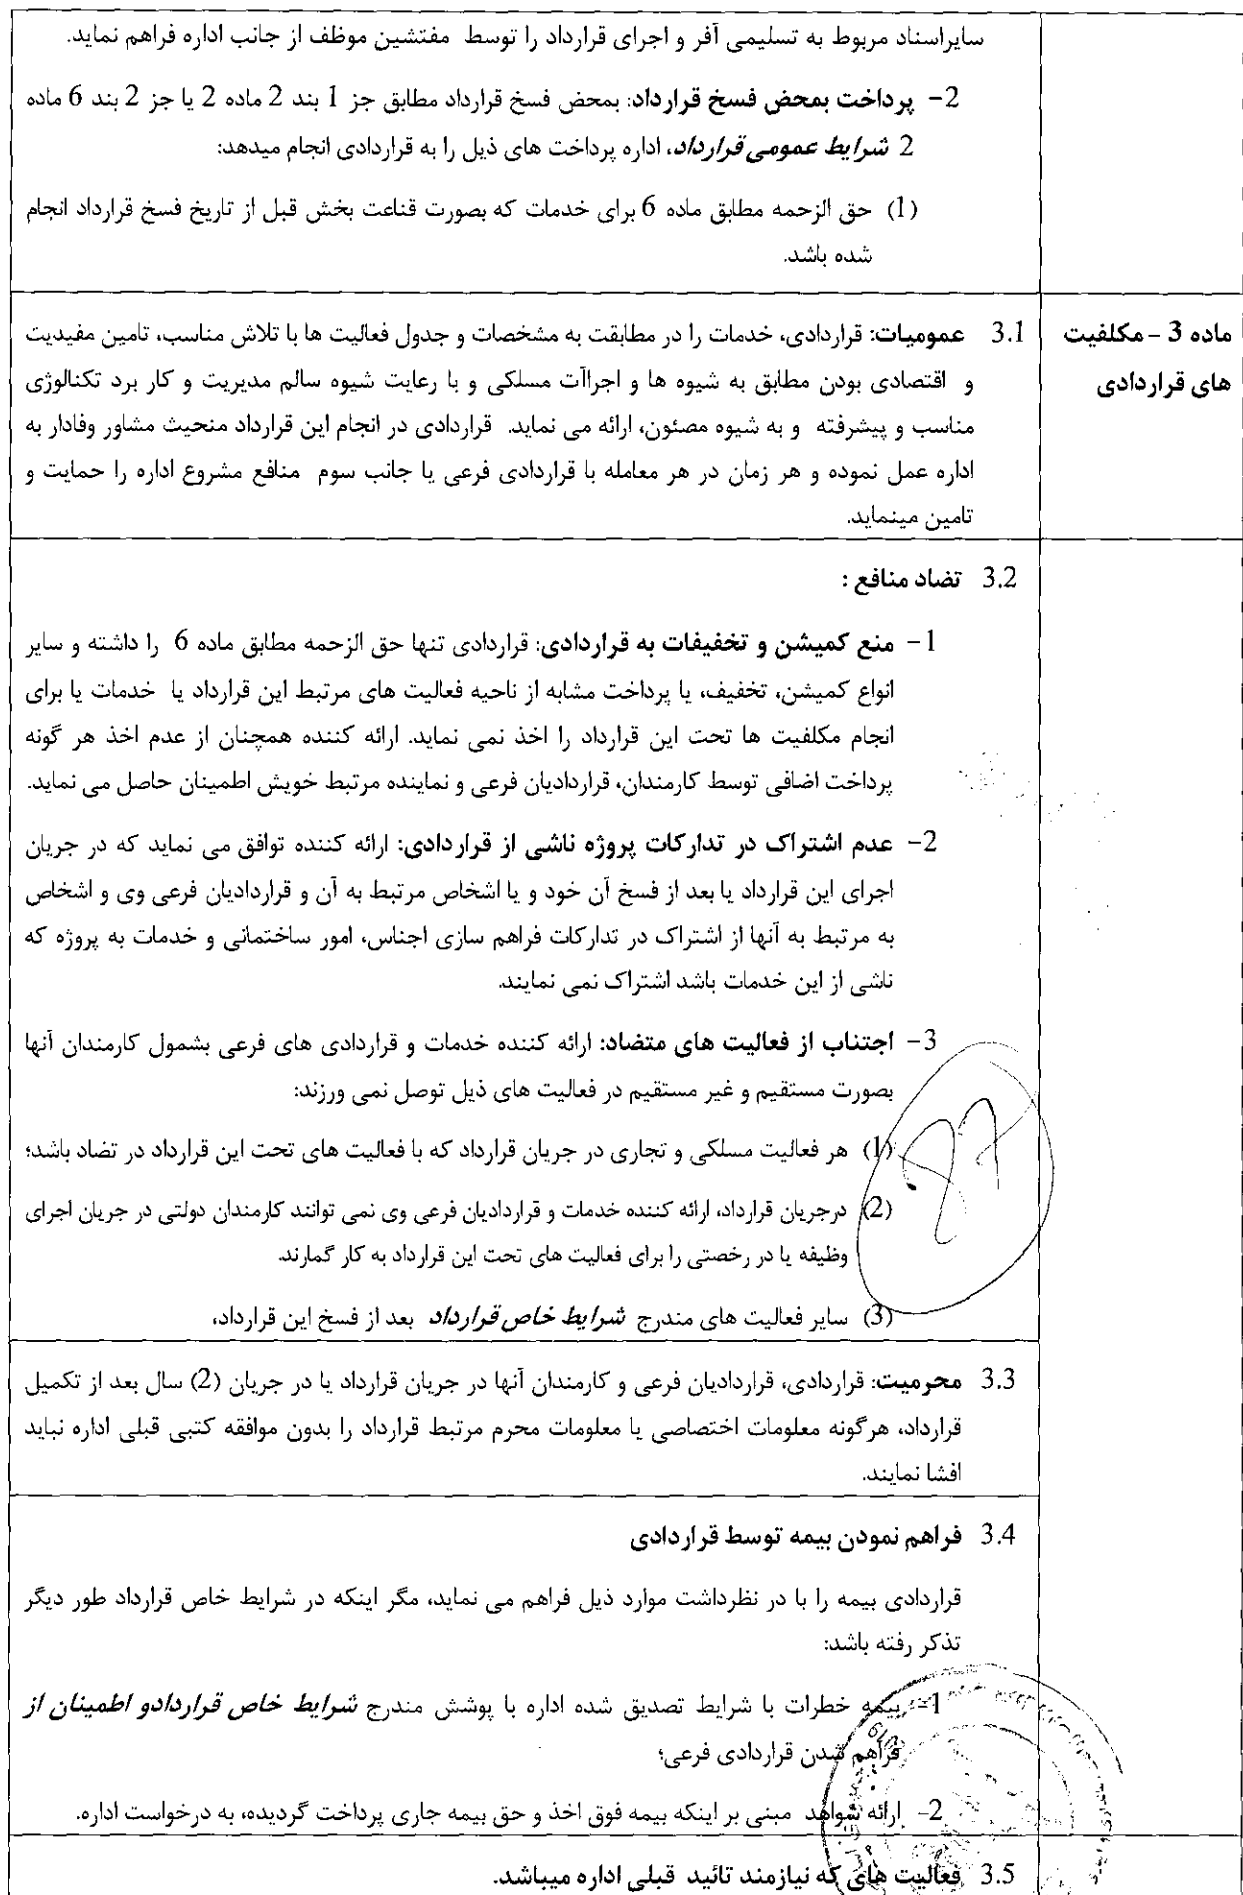 سایراسناد مربوط به تسلیمی آفر و اجرای قرارداد را توسط مفتشین موظف از جانب اداره فراهم نماید.
2- پرداخت بمحض فسخ قرارداد: بمحض فسخ قرارداد مطابق جز 1 بند 2 ماده 2 یا جز 2 بند 6 ماده
2 شرایط عمومی قرارداد، اداره پرداخت های ذیل را به قراردادی انجام میدهد:
(1) حق الزحمه مطابق ماده 6 برای خدمات که بصورت قناعت بخش قبل از تاریخ فسخ قرارداد انجام
شده باشد.
ماده 3 – مکلفیت
های قراردادی
3.1 عمومیات: قراردادی، خدمات را در مطابقت به مشخصات و جدول فعالیت ها با تلاش مناسب، تامین مفیدیت
و اقتصادی بودن مطابق به شیوه ها و اجراآت مسلکی و با رعایت شیوه سالم مدیریت و کار برد تکنالوژی
مناسب و پیشرفته و به شیوه مصئون، ارائه می نماید. قراردادی در انجام این قرارداد منحیث مشاور وفادار به
اداره عمل نموده و هر زمان در هر معامله با قراردادی فرعی یا جانب سوم منافع مشروع اداره را حمایت و
تامین مینماید.
3.2 تضاد منافع :
1- منع کمیشن و تخفیفات به قراردادی: قراردادی تنها حق الزحمه مطابق ماده 6 را داشته و سایر
انواع کمیشن، تخفیف، یا پرداخت مشابه از ناحیه فعالیت های مرتبط این قرارداد یا خدمات یا برای
انجام مکلفیت ها تحت این قرارداد را اخذ نمی نماید. ارائه کننده همچنان از عدم اخذ هر گونه
پرداخت اضافی توسط کارمندان، قراردادیان فرعی و نماینده مرتبط خویش اطمینان حاصل می نماید.
2- عدم اشتراک در تدارکات پروژه ناشی از قراردادی: ارائه کننده توافق می نماید که در جریان
اجرای این قرارداد یا بعد از فسخ آن خود و یا اشخاص مرتبط به آن و قراردادیان فرعی وی و اشخاص
به مرتبط به آنها از اشتراک در تدارکات فراهم سازی اجناس، امور ساختمانی و خدمات به پروژه که
ناشی از این خدمات باشد اشتراک نمی نمایند.
3- اجتناب از فعالیت های متضاد: ارائه کننده خدمات و قراردادی های فرعی بشمول کارمندان آنها
بصورت مستقیم و غیر مستقیم در فعالیت های ذیل توصل نمی ورزند:
(1) هر فعالیت مسلکی و تجاری در جریان قرارداد که با فعالیت های تحت این قرارداد در تضاد باشد؛
(2) درجریان قرارداد، ارائه کننده خدمات و قراردادیان فرعی وی نمی توانند کارمندان دولتی در جریان اجرای
وظیفه یا در رخصتی را برای فعالیت های تحت این قرارداد به کار گمارند.
(3) سایر فعالیت های مندرج شرایط خاص قرارداد بعد از فسخ این قرارداد،
3.3 محرمیت: قراردادی، قراردادیان فرعی و کارمندان آنها در جریان قرارداد یا در جریان (2) سال بعد از تکمیل
قرارداد، هرگونه معلومات اختصاصی یا معلومات محرم مرتبط قرارداد را بدون موافقه کتبی قبلی اداره نباید
افشا نمایند.
3.4 فراهم نمودن بیمه توسط قراردادی
قراردادی بیمه را با در نظرداشت موارد ذیل فراهم می نماید، مگر اینکه در شرایط خاص قرارداد طور دیگر
تذکر رفته باشد:
1- بیمه خطرات با شرایط تصدیق شده اداره با پوشش مندرج شرایط خاص قراردادو اطمینان از
فراهم شدن قراردادی فرعی؛
2- ارائه شواهد مبنی بر اینکه بیمه فوق اخذ و حق بیمه جاری پرداخت گردیده، به درخواست اداره.
3.5 فعالیت های که نیازمند تائید قبلی اداره میباشد.